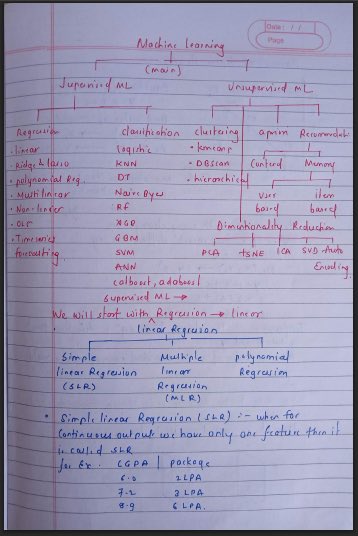 Date: / /
Page
Machine learning
(main)
Supervised ML Unsupervised ML
Regression classification clustering apriori Recomendati
• linear logistic • kmeans
• Ridge & lasso KNN • DBScan Content Memory
• polynomial Reg. DT • hierarchical
• Multilinear Naive Byes user item
• Non-linear RF based based
• OLS Dimentionality Reduction
• Time series GBM PCA tSNE ICA SVD Auto
forecasting. SVM Encoding
ANN
catboost, adaboost
supervised ML →
We will start with Regression → linear
linear Regression
Simple Multiple polynomial
linear Regression linear Regression
(SLR) Regression
(MLR)
• Simple linear Regression (SLR) :- when for
continuous output we have only one feature then it
is called SLR
for Ex. CGPA package
6.0 2LPA
7.2 3LPA
8.9 6LPA.